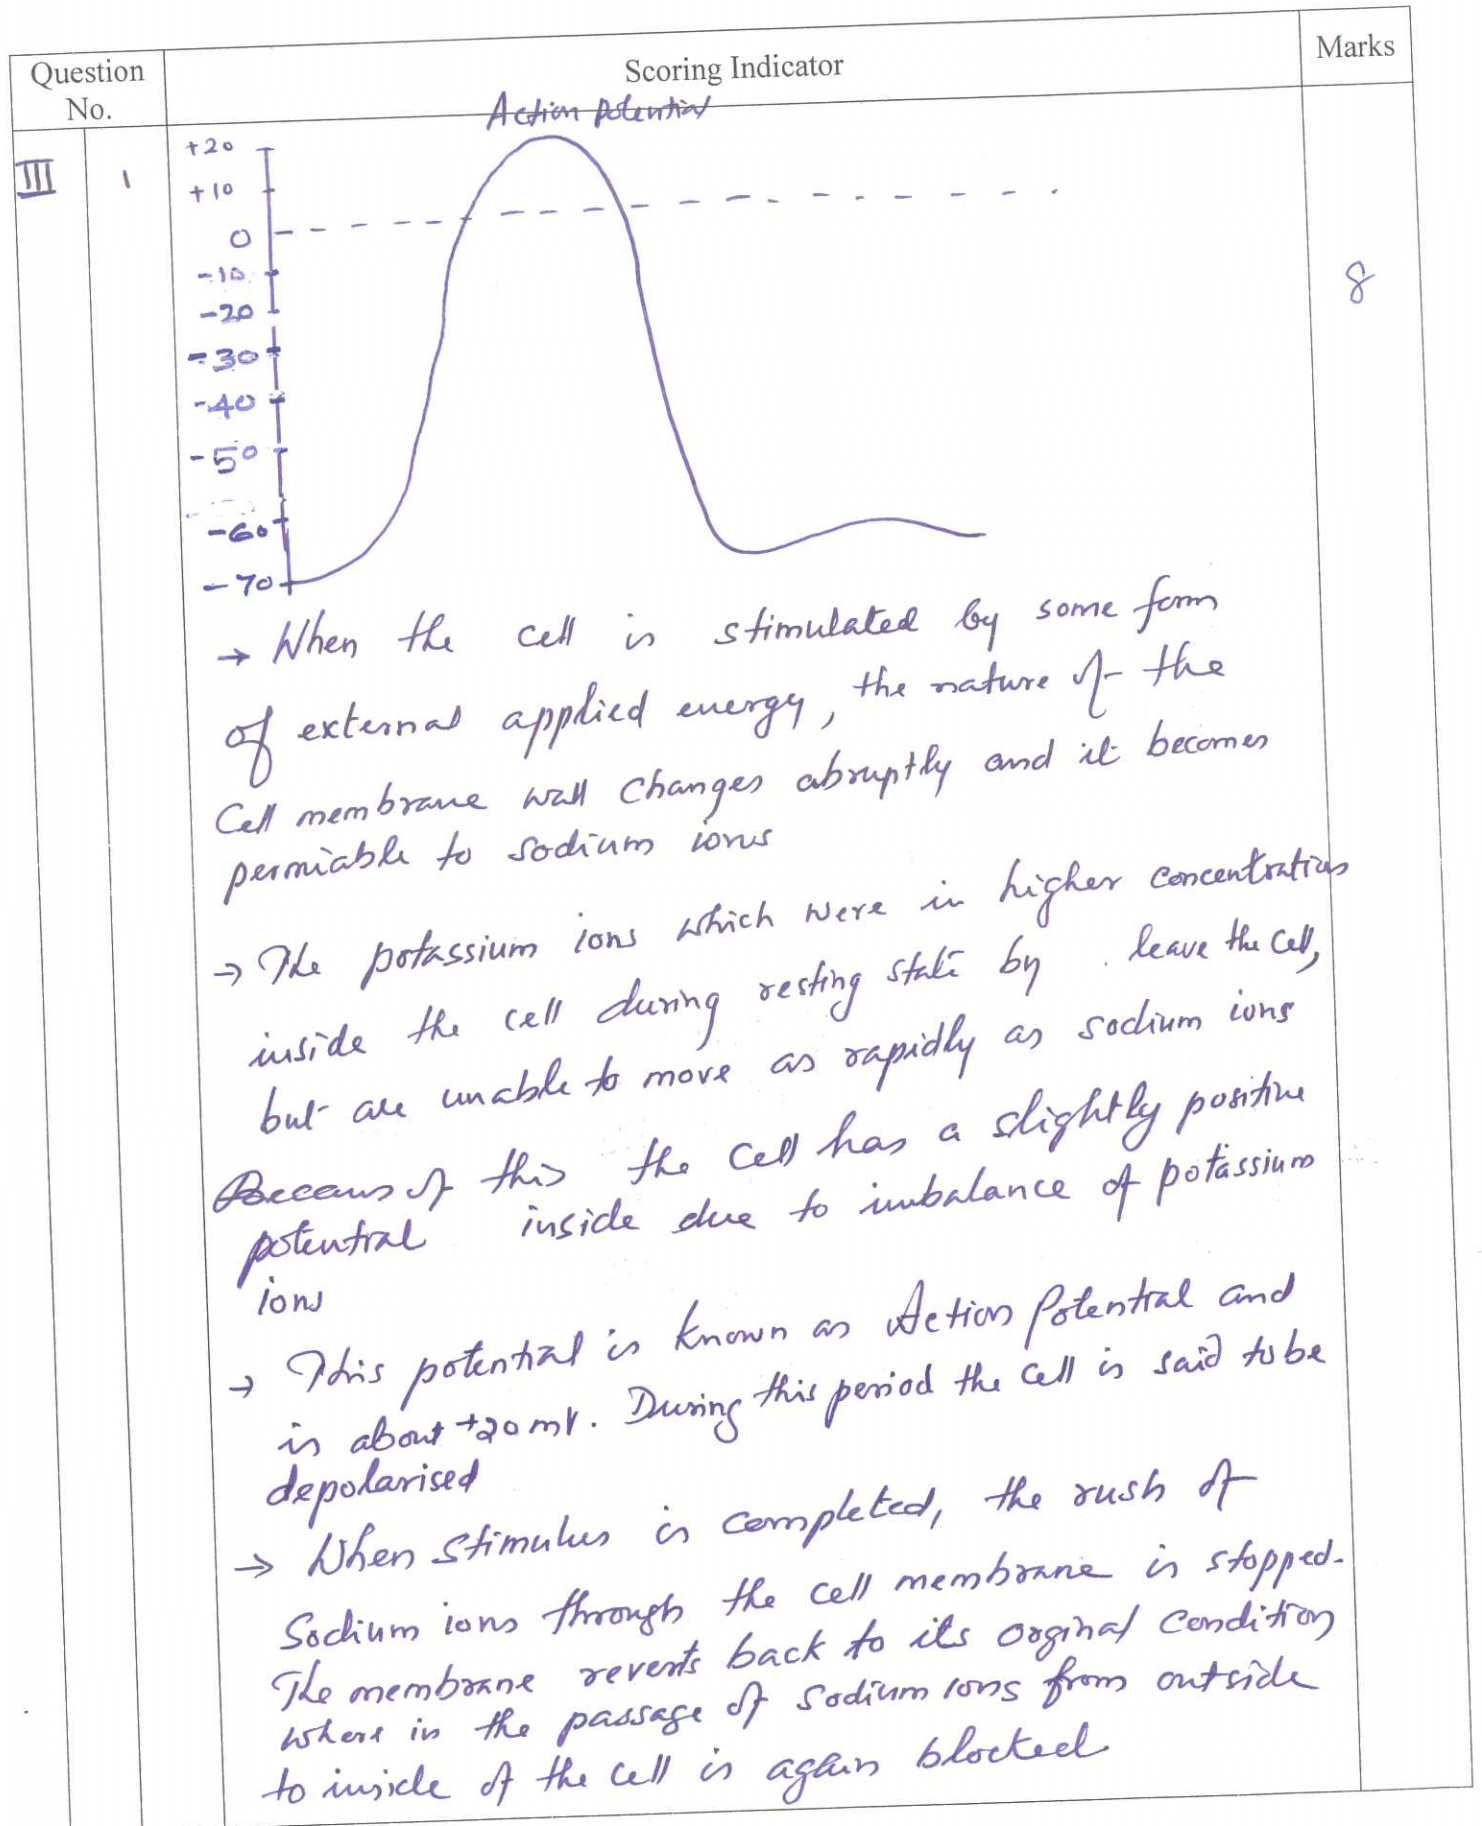 Question No.
Scoring Indicator
Marks
Action potential
III 1
+20
+10
0
-10
-20
-30
-40
-50
-60
-70
8
→ When the cell is stimulated by some form
of external applied energy, the nature of the
Cell membrane wall changes abruptly and it becomes
permiable to sodium ions
→ The potassium ions which were in higher concentration
inside the cell during resting state by leave the cell,
but are unable to move as rapidly as sodium ions
Becaus of this the cell has a slightly positive
potential inside due to imbalance of potassium
ions
→ This potential is known as Action Potential and
is about +20mV. During this period the cell is said to be
depolarised
→ When stimulus is completed, the rush of
Sodium ions through the cell membrane is stopped.
The membrane reverts back to its orginal condition
where in the passage of sodium ions from outside
to inside of the cell is again blocked